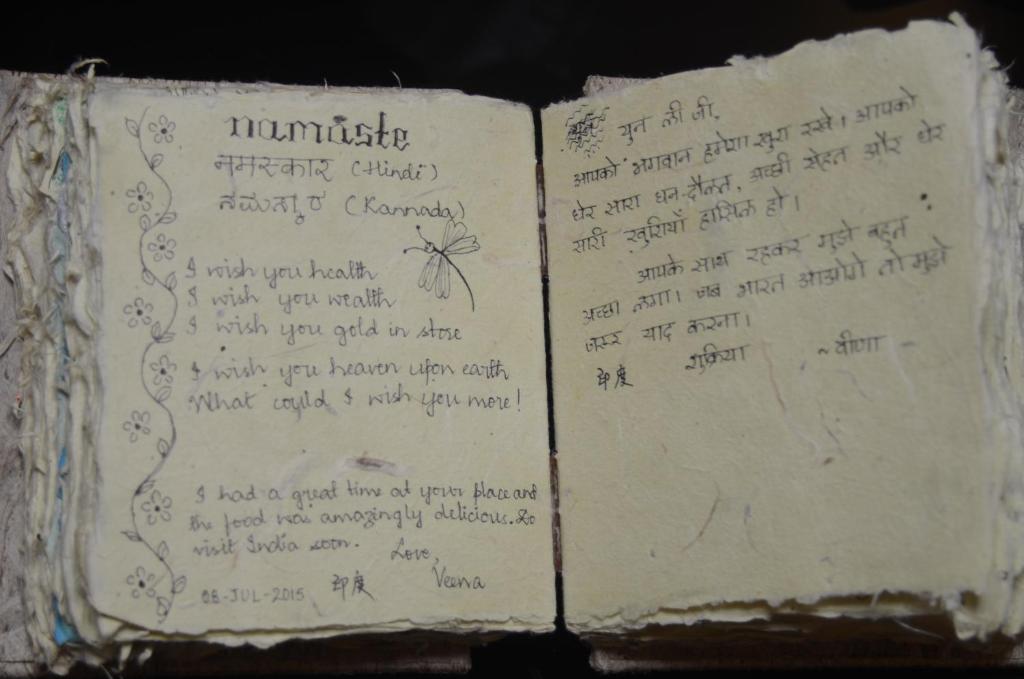 namaste
नमस्कार (Hindi)
ನಮಸ್ಕಾರ (Kannada)
I wish you health
I wish you wealth
I wish you gold in store
I wish you heaven upon earth
What could I wish you more!
I had a great time at your place and
the food was amazingly delicious. Do
visit India soon.
Love,
Veena
08-JUL-2015 印度
युन ली जी,
आपको भगवान हमेशा खुश रखे। आपको
ढेर सारा धन-दौलत, अच्छी सेहत और ढेर
सारी खुशियाँ हासिल हो।
आपके साथ रहकर मुझे बहुत
अच्छा लगा। जब भारत आओगे तो मुझे
जरूर याद करना।
शुक्रिया ~वीणा
印度